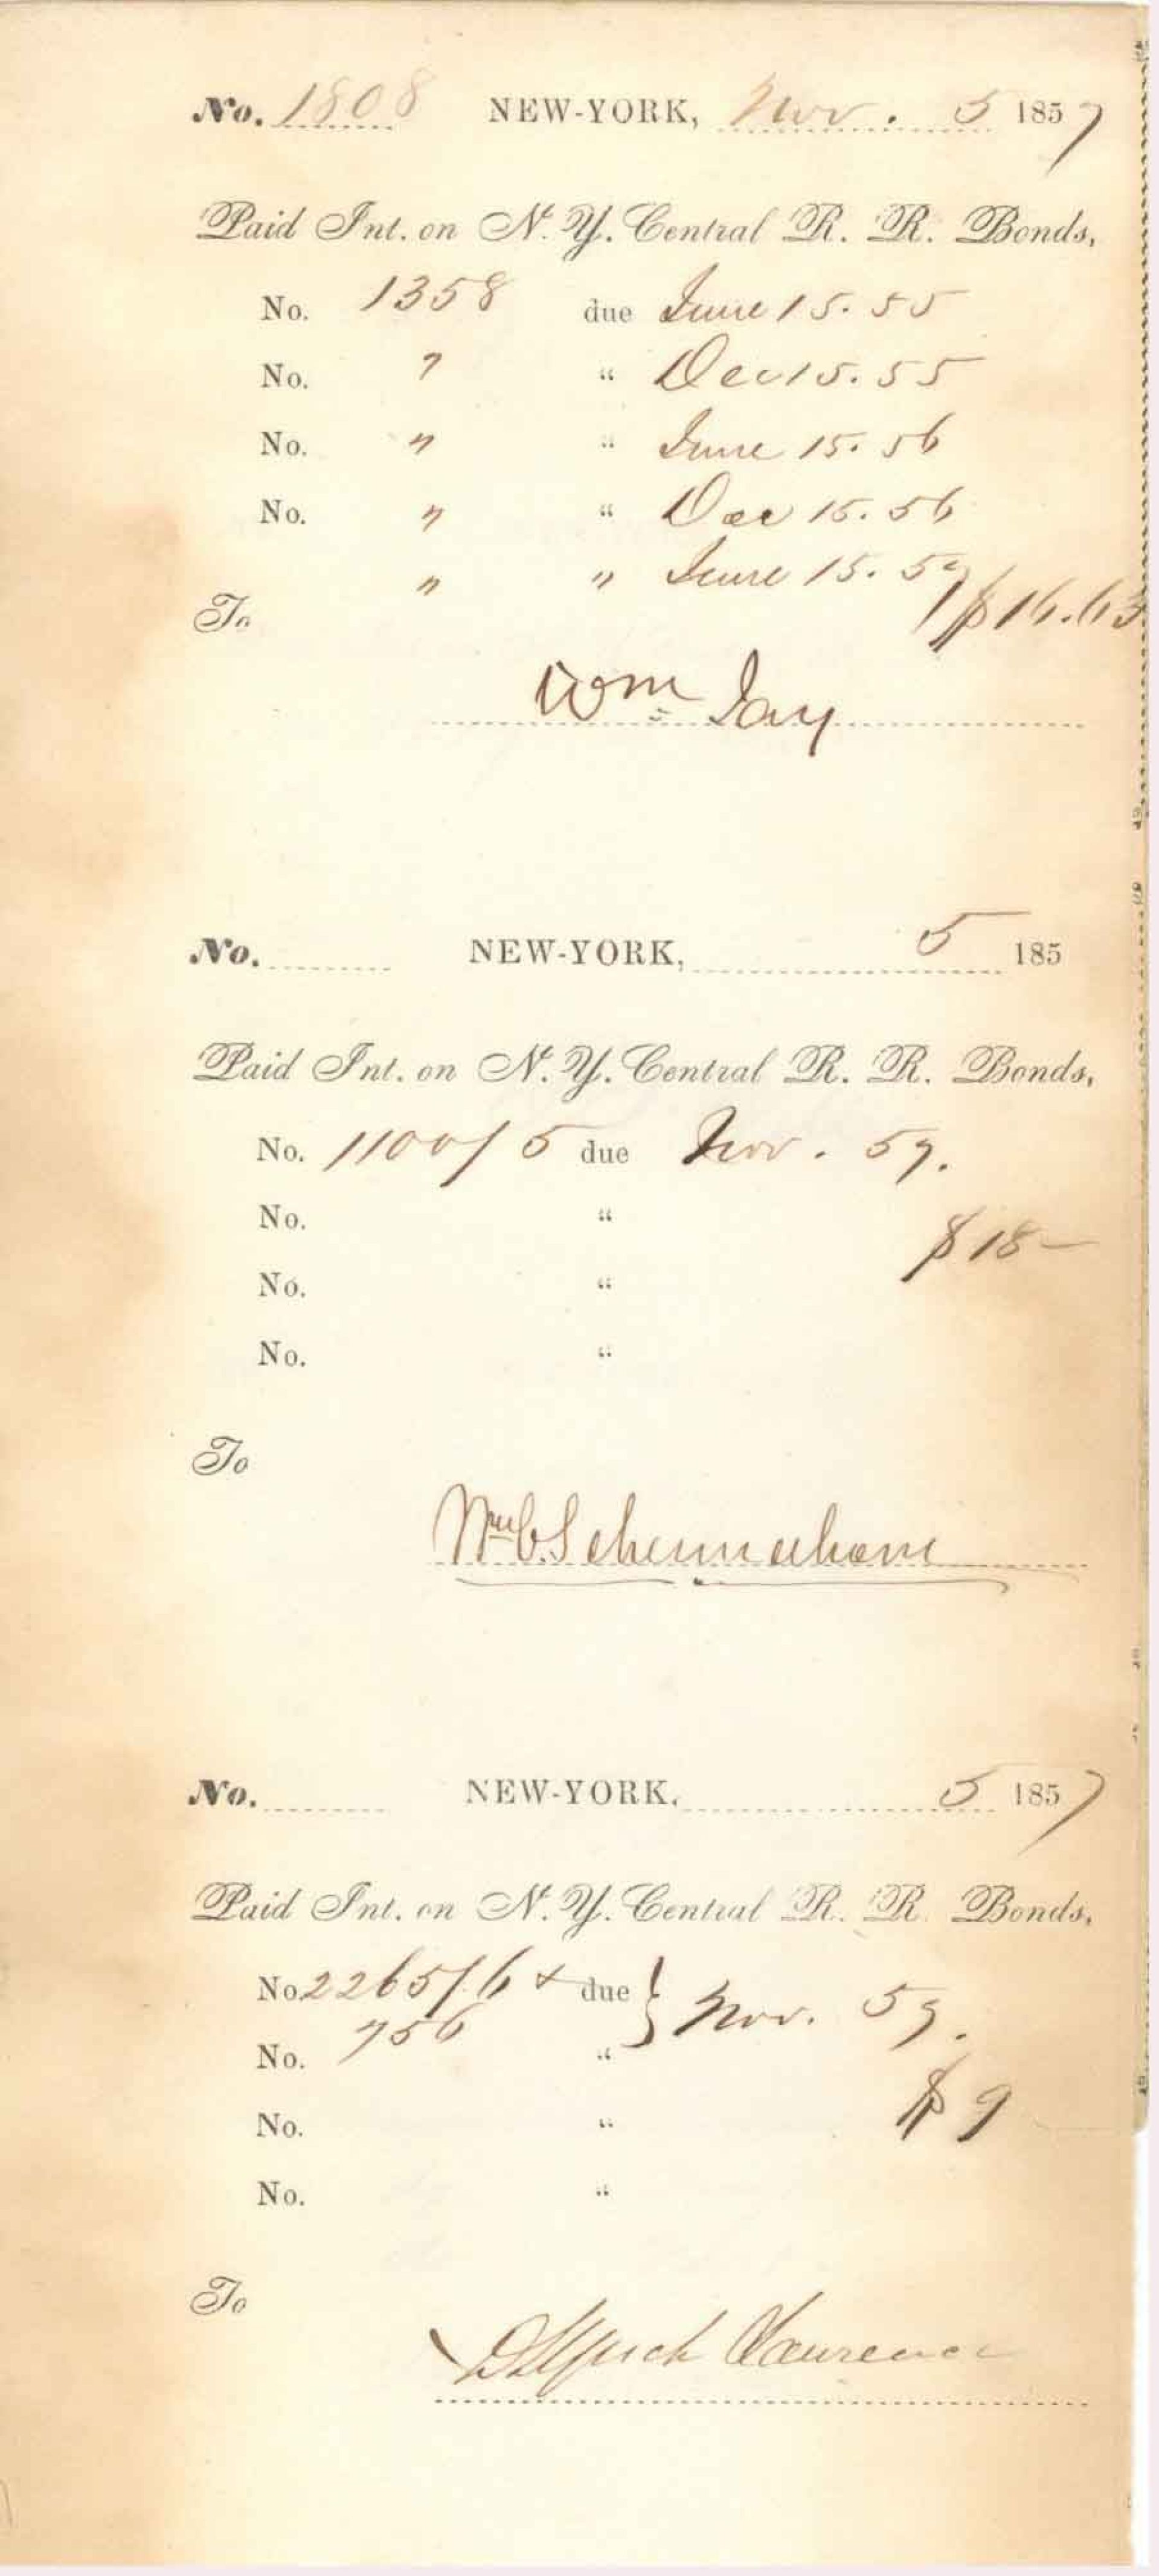 No. 1808 NEW-YORK, Nov. 5 1857
Paid Int. on N. Y. Central R. R. Bonds,
No. 1358 due June 15. 55
No. " “ Dec 15. 55
No. " “ June 15. 56
No. " “ Dec 15. 56
" " June 15. 57 $16.63
To
Wm Jay
No. NEW-YORK, 5 185
Paid Int. on N. Y. Central R. R. Bonds,
No. 1100/5 due Nov. 57.
No. “
$18-
No. “
No. “
To
Wm C. Schermerhorn
No. NEW-YORK, 5 1857
Paid Int. on N. Y. Central R. R. Bonds,
No. 2265/6 + due } Nov. 57.
No. 756 “
$9
No. “
No. “
To
Lawrence